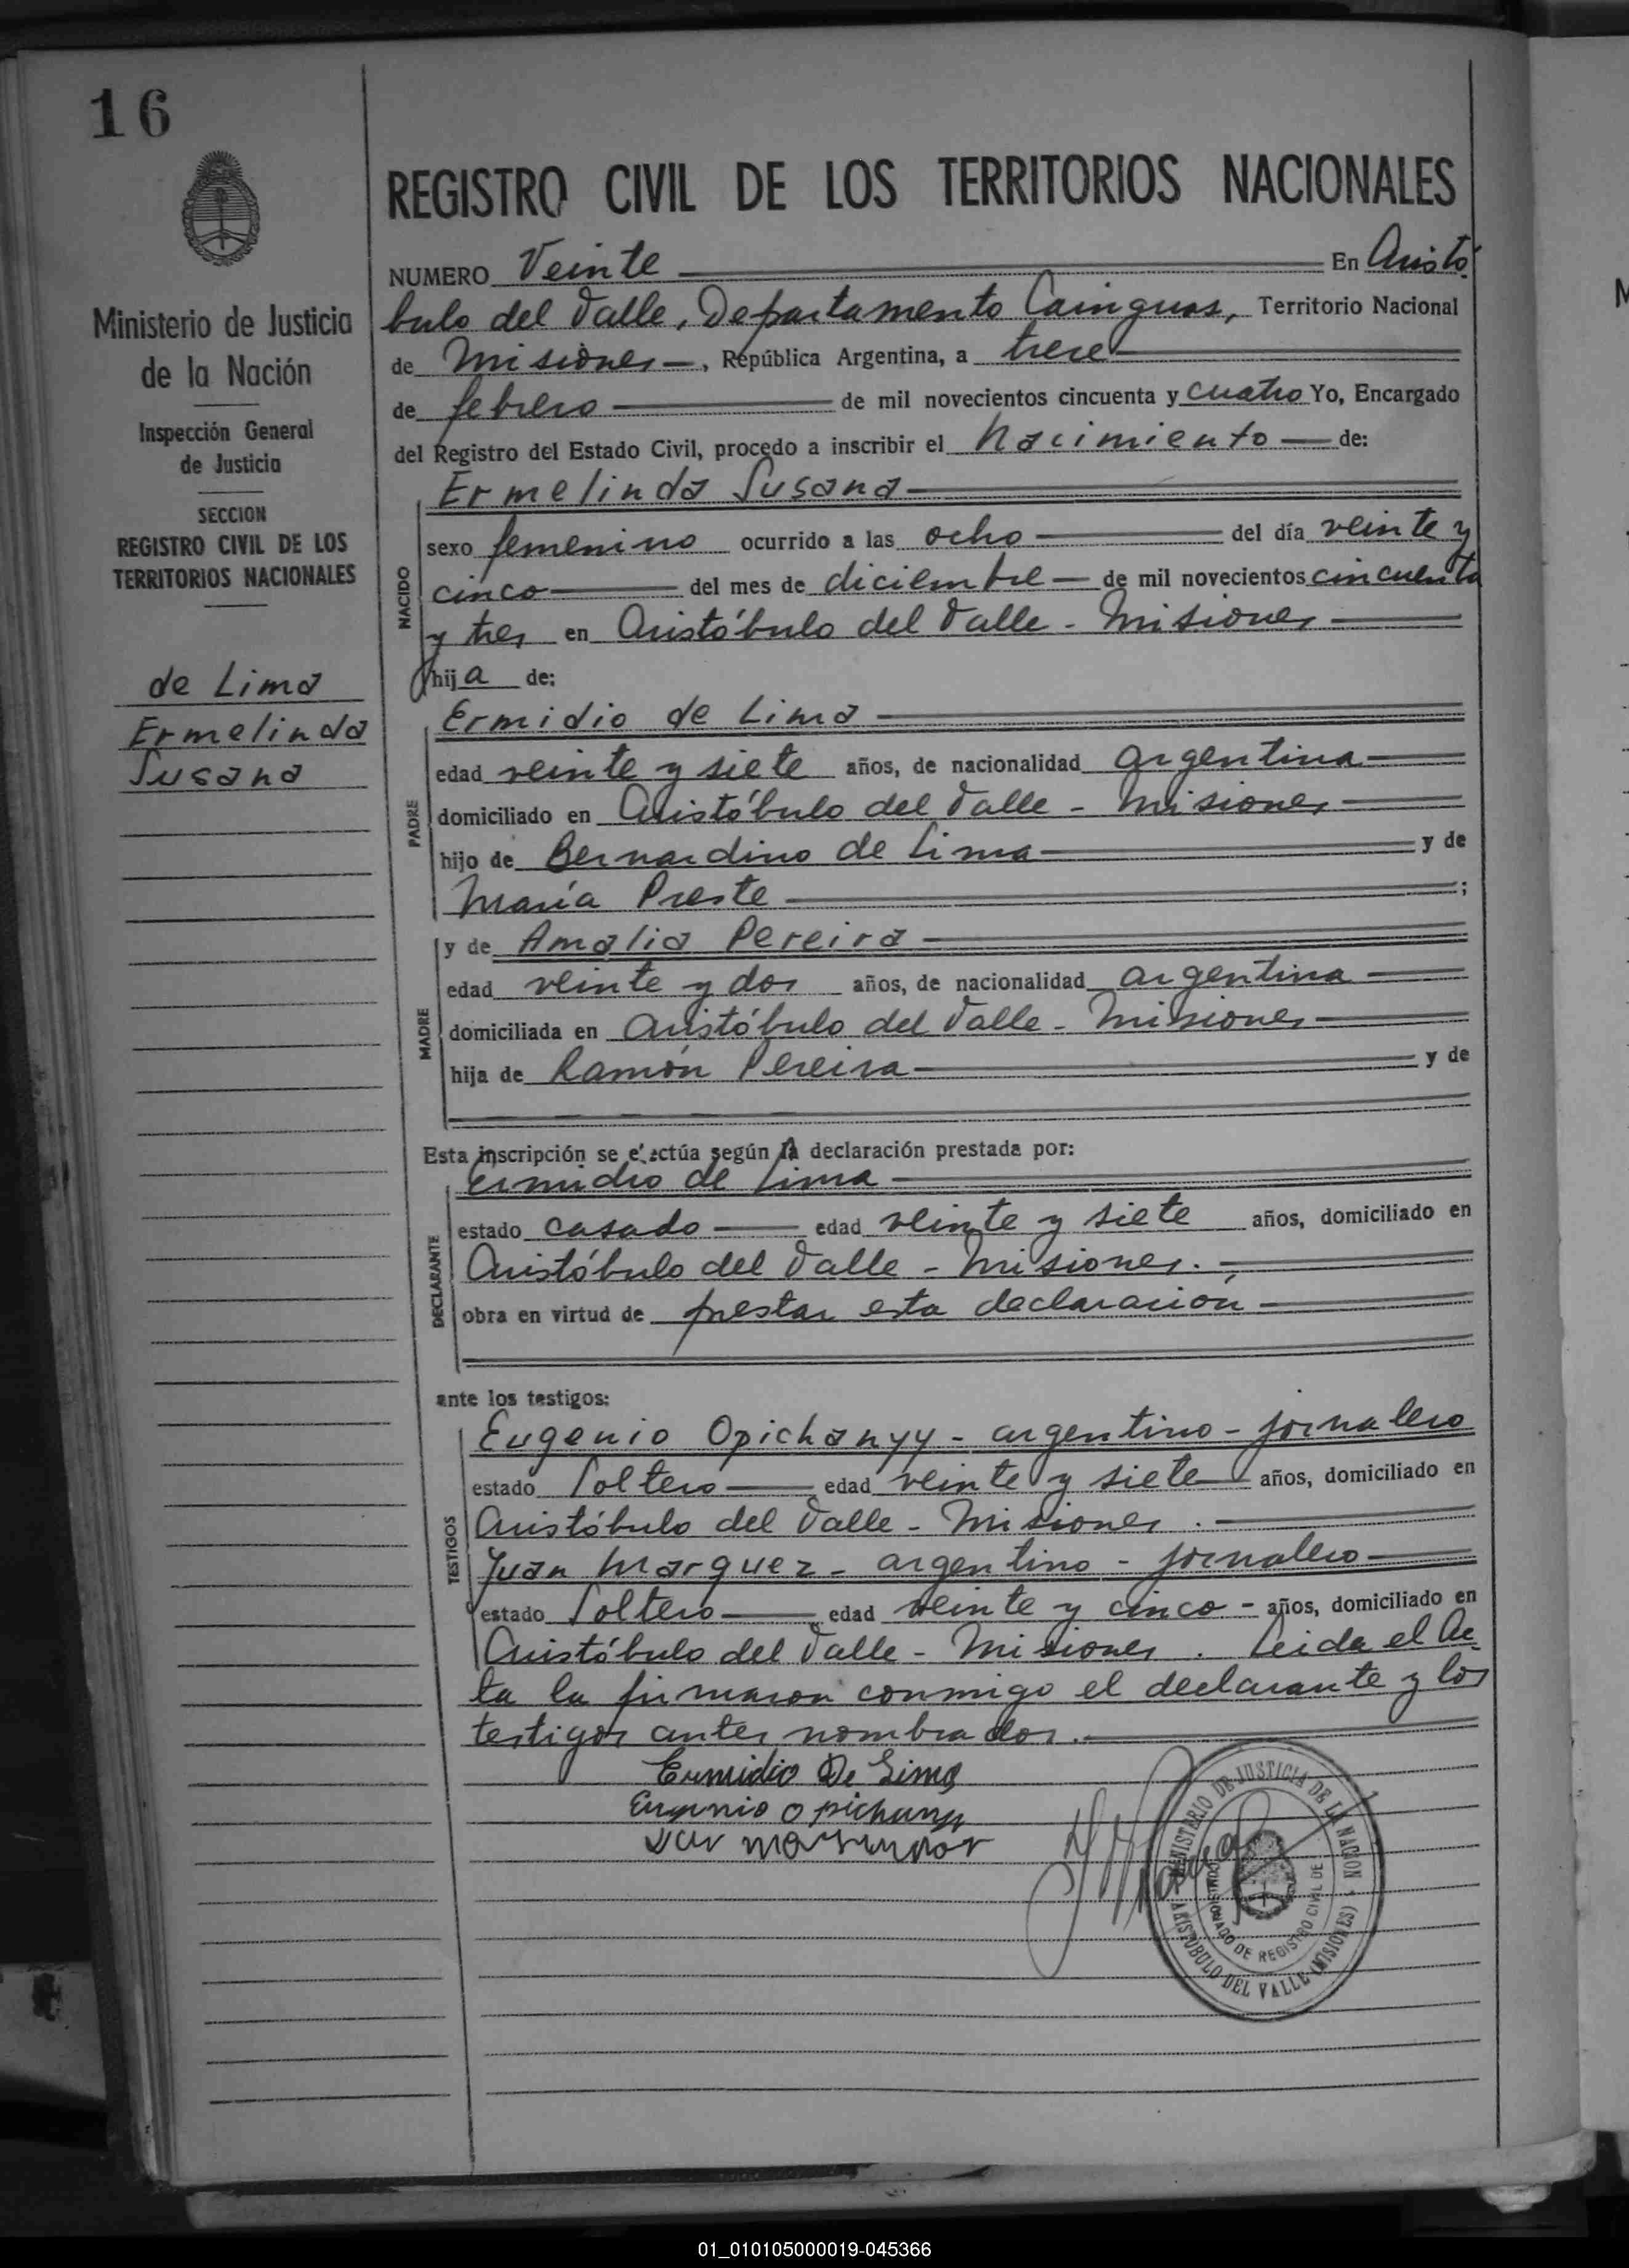 16
Ministerio de Justicia
de la Nación
Inspección General
de Justicia
SECCION
REGISTRO CIVIL DE LOS
TERRITORIOS NACIONALES
de Lima
Ermelinda
Susana
REGISTRO CIVIL DE LOS TERRITORIOS NACIONALES
NUMERO Veinte En Aristó
bulo del Valle, Departamento Cainguas, Territorio Nacional
de Misiones, República Argentina, a trece
de febrero de mil novecientos cincuenta y cuatro Yo, Encargado
del Registro del Estado Civil, procedo a inscribir el Nacimiento de:
NACIDO
Ermelinda Susana
sexo femenino ocurrido a las ocho del día veinte y
cinco del mes de diciembre de mil novecientos cincuenta
y tres en Aristóbulo del Valle - Misiones
hija de:
PADRE
Ermidio de Lima
edad veinte y siete años, de nacionalidad argentina
domiciliado en Aristóbulo del Valle - Misiones
hijo de Bernardino de Lima y de
María Preste ;
MADRE
y de Amalia Pereira
edad veinte y dos años, de nacionalidad argentina
domiciliada en Aristóbulo del Valle - Misiones
hija de Ramón Pereira y de
Esta inscripción se efectúa según la declaración prestada por:
DECLARANTE
Ermidio de Lima
estado casado edad veinte y siete años, domiciliado en
Aristóbulo del Valle - Misiones.
obra en virtud de prestar esta declaración
ante los testigos:
TESTIGOS
Eugenio Opichanyy - argentino - jornalero
estado Soltero edad veinte y siete años, domiciliado en
Aristóbulo del Valle - Misiones.
Juan Marquez - argentino - jornalero
estado Soltero edad veinte y cinco - años, domiciliado en
Aristóbulo del Valle - Misiones. Leida el Ac
ta la firmaron conmigo el declarante y los
testigos antes nombrados.
Ermidio De Lima
Eugenio Opichany
MINISTERIO DE JUSTICIA DE LA NACION
COMISIONADO DE REGISTRO CIVIL DE
ARISTOBULO DEL VALLE (MISIONES)
01_010105000019-045366